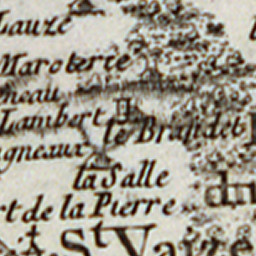 Lauzé
Maroterie
neau
Lambert
le Brandet
gneaux
la Salle
rt de la Pierre
St Vaize